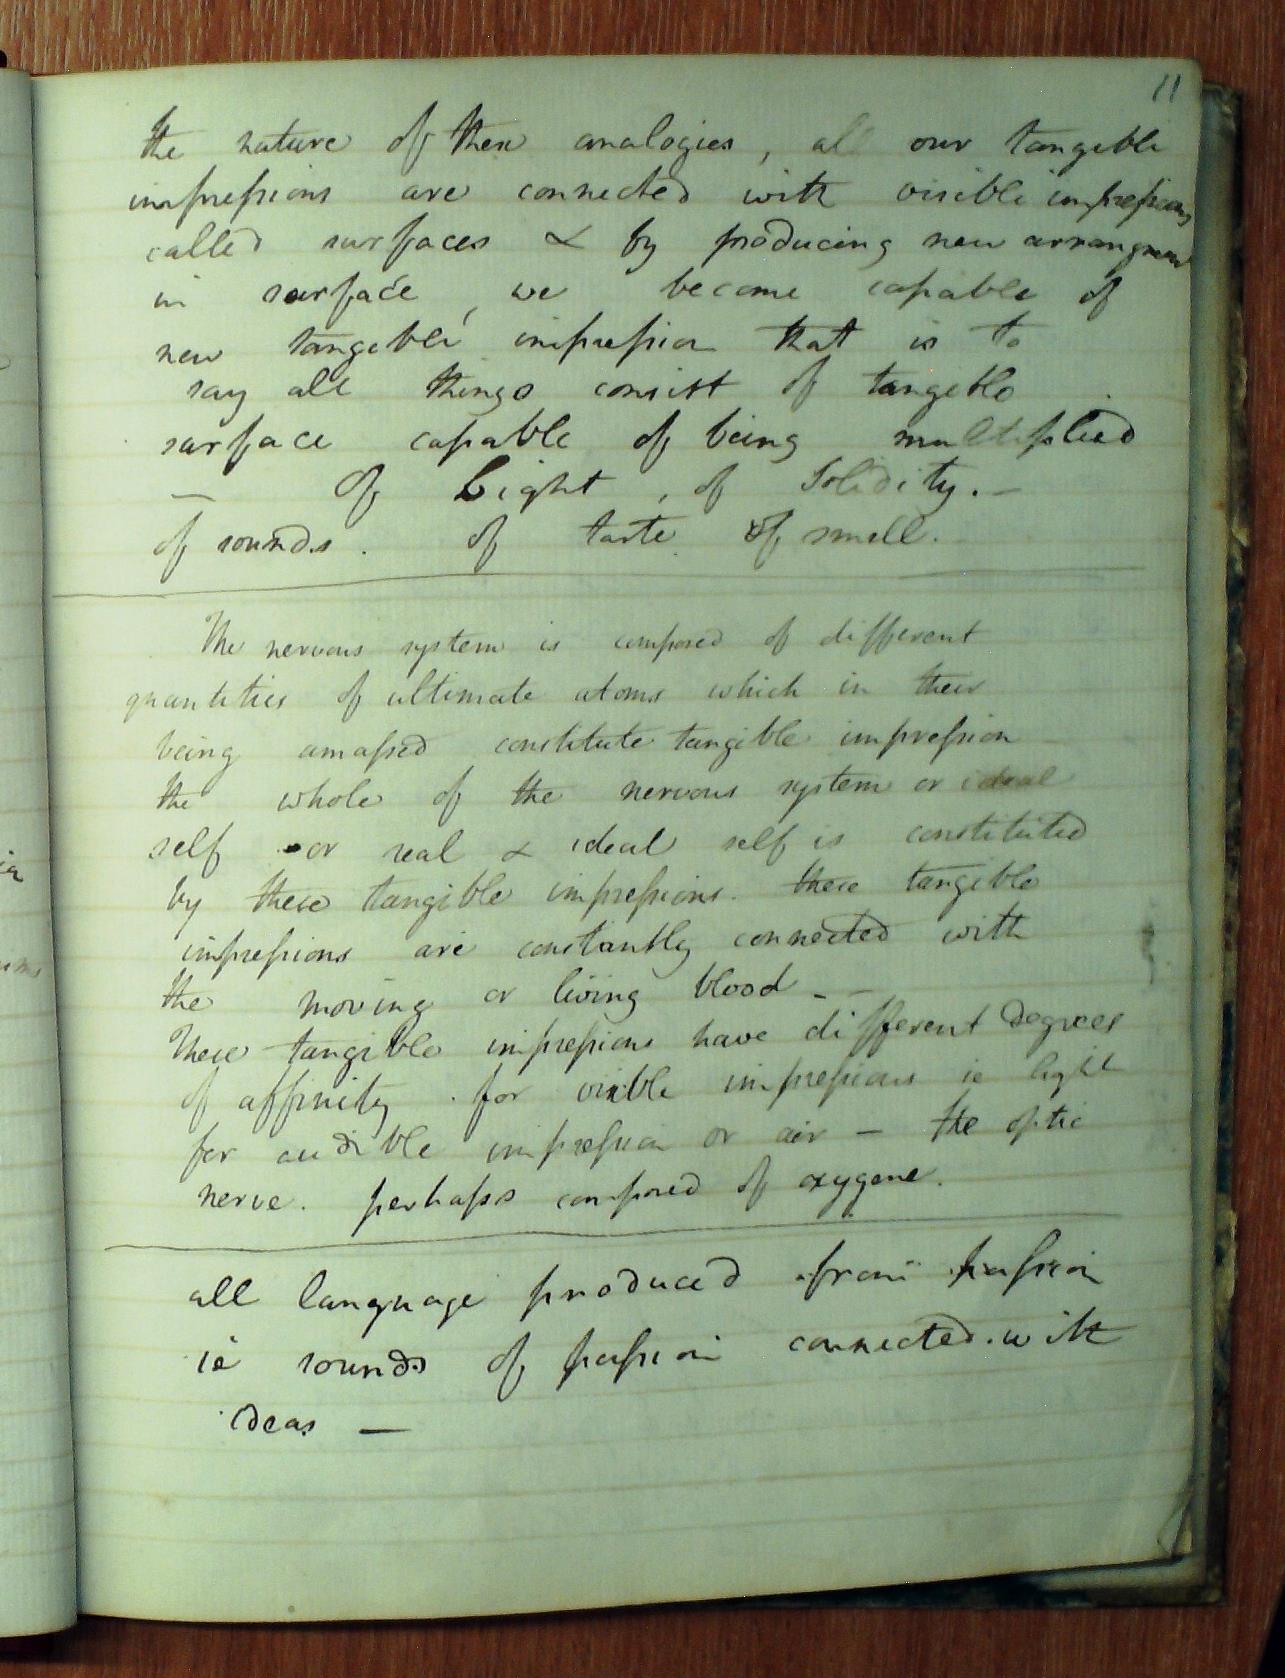 11
the nature of these analogies, all our tangible
impressions are connected with visible impressions
called surfaces & by producing new arrangment
in surface, we become capable of
new tangible impression that is to
say all things consist of tangible
surface capable of being multiplied
— Of Light, of Solidity. —
of sounds. of taste of smell.
The nervous system is composed of different
quantities of ultimate atoms which in their
being amassed constitute tangible impression
the whole of the nervous system or ideal
self or real & ideal self is constituted
by these tangible impressions. these tangible
impressions are constantly connected with
the moving or living blood - -
These tangible impressions have different degrees
of affinity. for visible impressions ie light
for audible impression or air — the optic
nerve. perhaps composed of oxygene.
all language produced from passion
ie sounds of passion connected with
ideas —